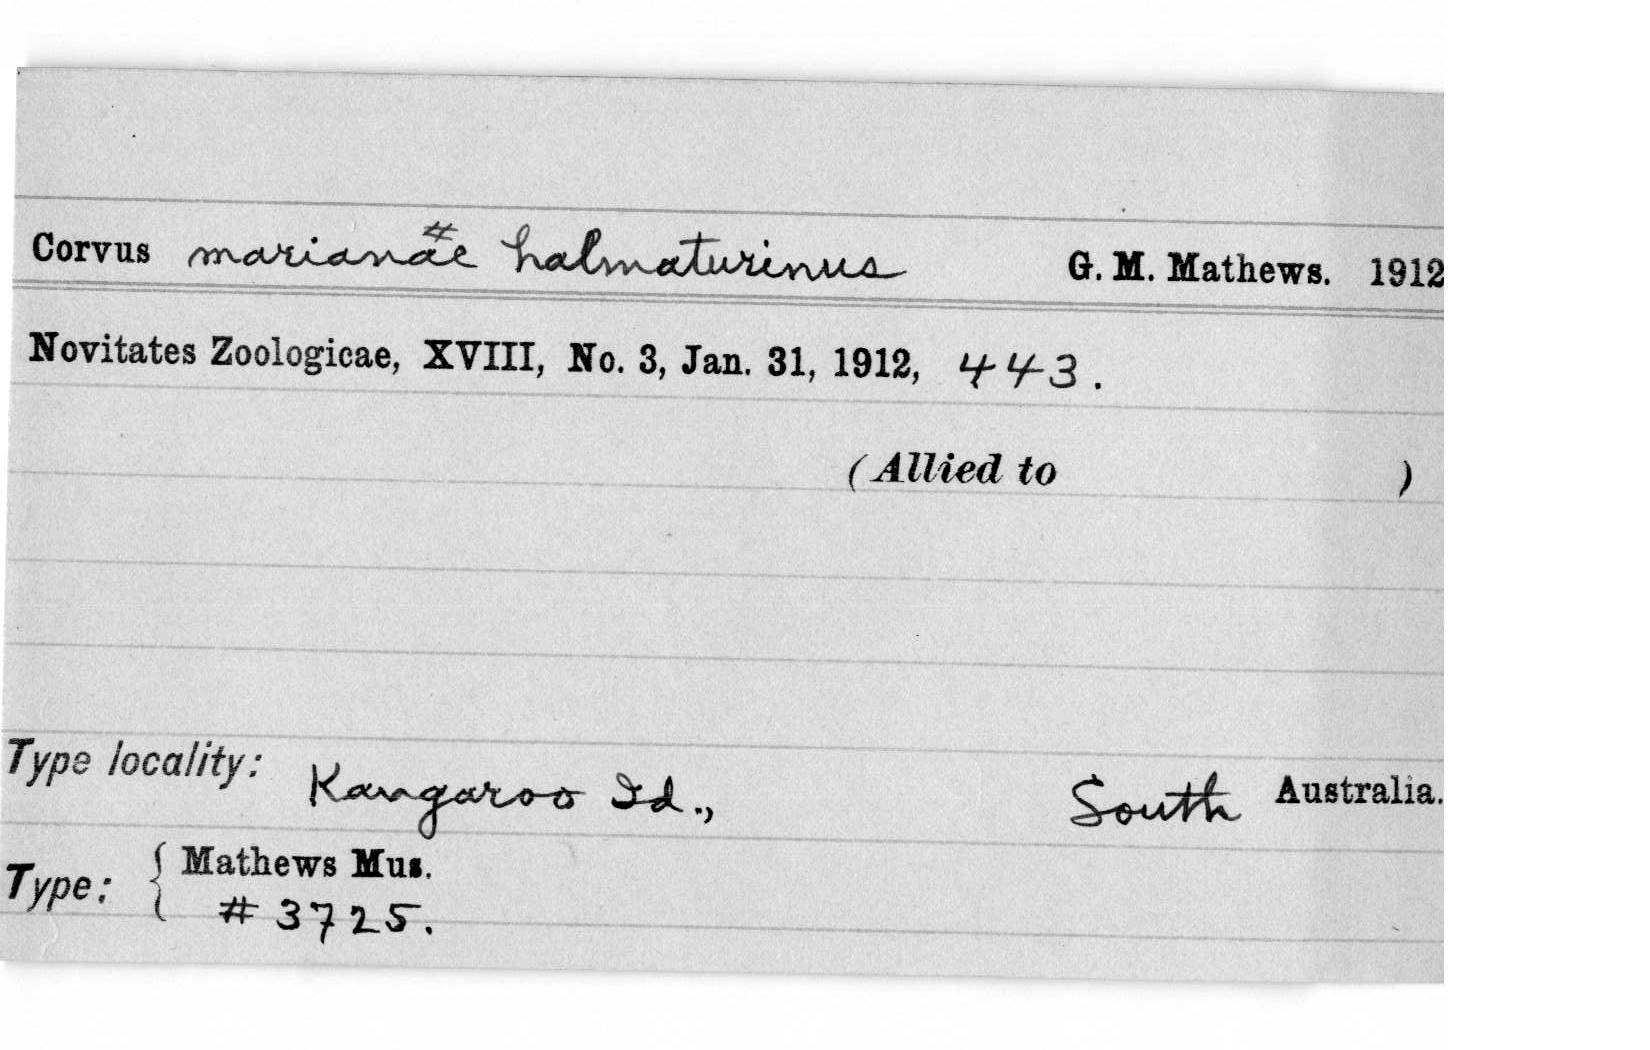 #
Corvus marianae halmaturinus G. M. Mathews. 1912
Novitates Zoologicae, XVIII, No. 3, Jan. 31, 1912, 443.
(Allied to )
Type locality: Kangaroo Id., South Australia.
Type: { Mathews Mus.
# 3725.